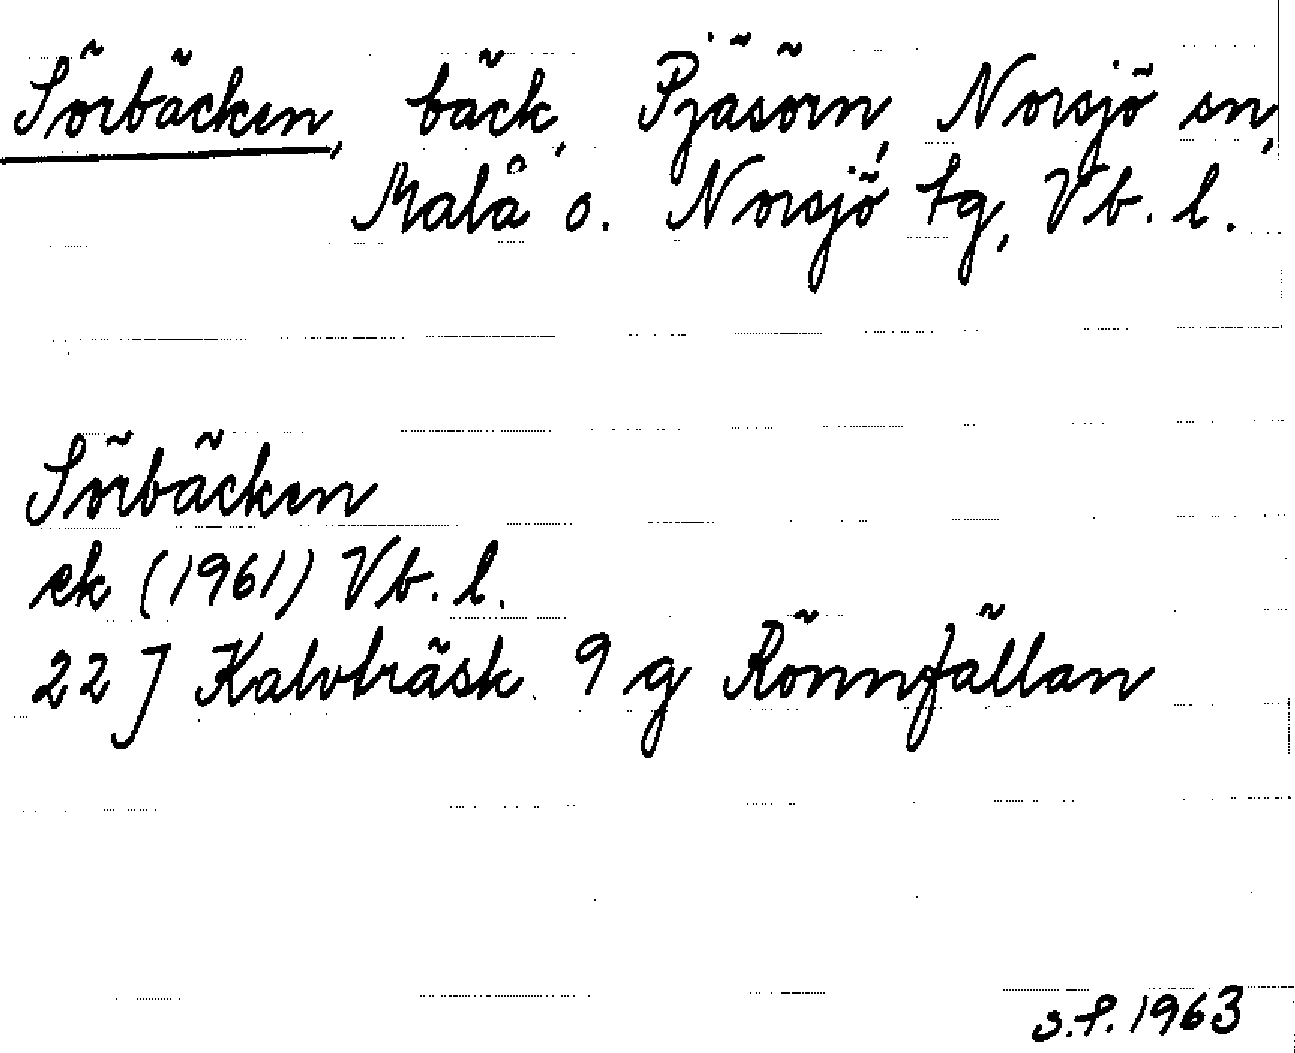 Sörbäcken, bäck, Pjäsörn, Norsjö sn,
Malå o. Norsjö tg, Vb. l.
Sörbäcken
ek (1961) Vb. l.
22 J Kalvträsk 9 g Rönnfällan
S.P. 1963